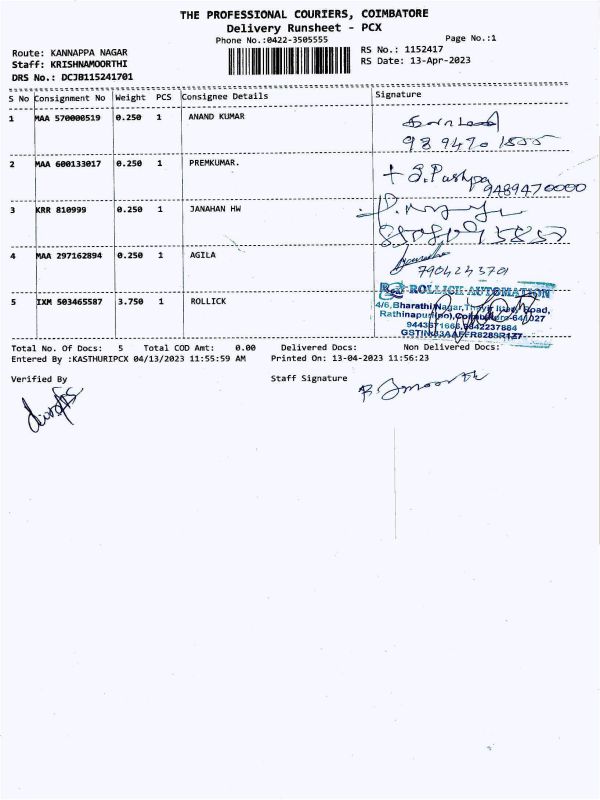 THE PROFESSIONAL COURIERS, COIMBATORE
Delivery Runsheet - PCX
Phone No.:0422-3505555
Page No.:1
Route: KANNAPPA NAGAR
RS No.: 1152417
Staff: KRISHNAMOORTHI
RS Date: 13-Apr-2023
DRS No.: DCJB115241701
S No Consignment No Weight PCS Consignee Details Signature
1 MAA 570000519 0.250 1 ANAND KUMAR
2 MAA 600133017 0.250 1 PREMKUMAR.
S.Pushpa
9489470000
3 KRR 810999 0.250 1 JANAHAN HW
4 MAA 297162894 0.250 1 AGILA
7904243701
5 IXM 503465587 3.750 1 ROLLICK
ROLLICK AUTOMATION
4/6,Bharathi Nagar, Road,
Rathinapuri(po),Coimbatore-641027
GSTIN
Total No. Of Docs: 5 Total COD Amt: 0.00 Delivered Docs: Non Delivered Docs:
Entered By :KASTHURIPCX 04/13/2023 11:55:59 AM Printed On: 13-04-2023 11:56:23
Verified By Staff Signature